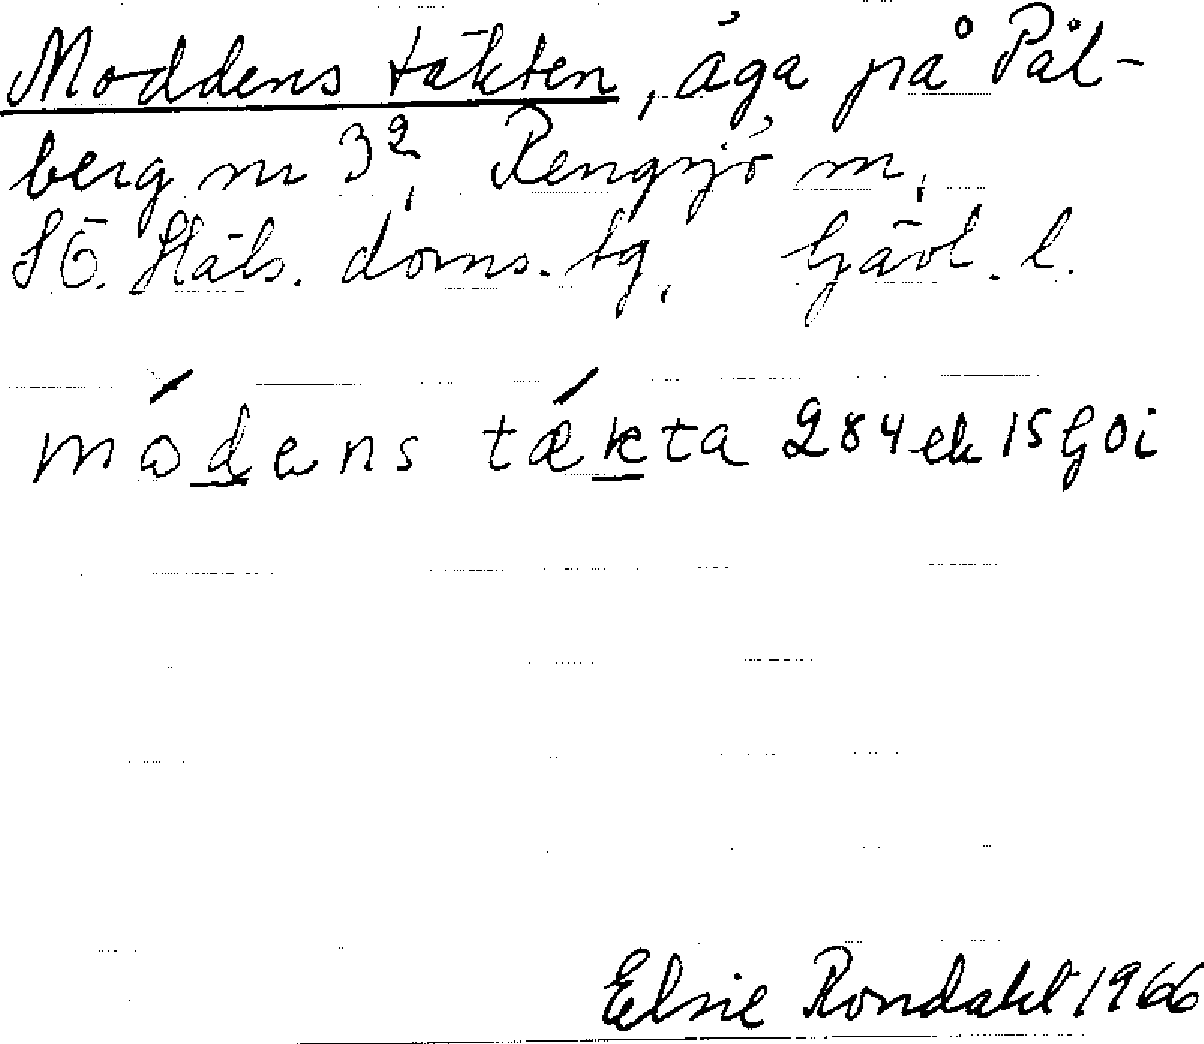 Moddens täkten, äga på Pål-
berg nr 3², Rengsjö sn,
SÖ. Häls. doms. tg, Gävl. l.
módens tǽkta 284 ek 15 G Oi
Elsie Rondahl 1966